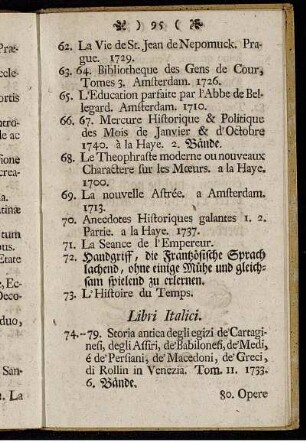 ) 95 (
62. La Vie de St. Jean de Nepomuck. Pra-
gue. 1729.
63. 64. Bibliotheque des Gens de Cour,
Tomes 3. Amsterdam. 1726.
65. L'Education parfaite par l'Abbe de Bel-
legard. Amsterdam. 1710.
66. 67. Mercure Historique & Politique
des Mois de Janvier & d'Octobre
1740. à la Haye. 2. Bände.
68. Le Theophraste moderne ou nouveaux
Charactere sur les Mœurs. a la Haye.
1700.
69. La nouvelle Astrée. a Amsterdam.
1713.
70. Anecdotes Historiques galantes 1. 2.
Partie. a la Haye. 1737.
71. La Seance de l'Empereur.
72. Handgriff, die Frantzösische Sprach
lachend, ohne einige Mühe und gleich-
sam spielend zu erlernen.
73. L'Histoire du Temps.
Libri Italici.
74.-79. Storia antica degli egizi de'Cartagi-
nesi, degli Assiri, de'Babilonesi, de'Medi,
é de'Persiani, de'Macedoni, de'Greci,
di Rollin in Venezia. Tom. 11. 1733.
6. Bände.
80. Opere